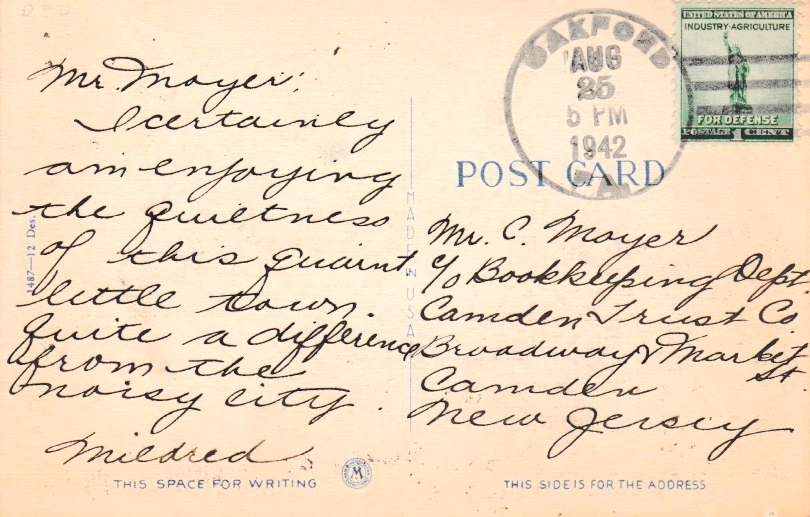 Mr. Moyer:
I certainly
am enjoying
the quietness
of this quaint
little town.
Quite a difference
from the
noisy city.
Mildred
THIS SPACE FOR WRITING
1487—12 Des.
MADE IN USA
M
OAKFORD
AUG
25
5 PM
1942
PA.
UNITED STATES OF AMERICA
INDUSTRY-AGRICULTURE
FOR DEFENSE
POSTAGE 1 CENT
POST CARD
Mr. C. Moyer
c/o Bookkeeping Dept.
Camden Trust Co.
Broadway & Market St.
Camden
New Jersey
THIS SIDE IS FOR THE ADDRESS